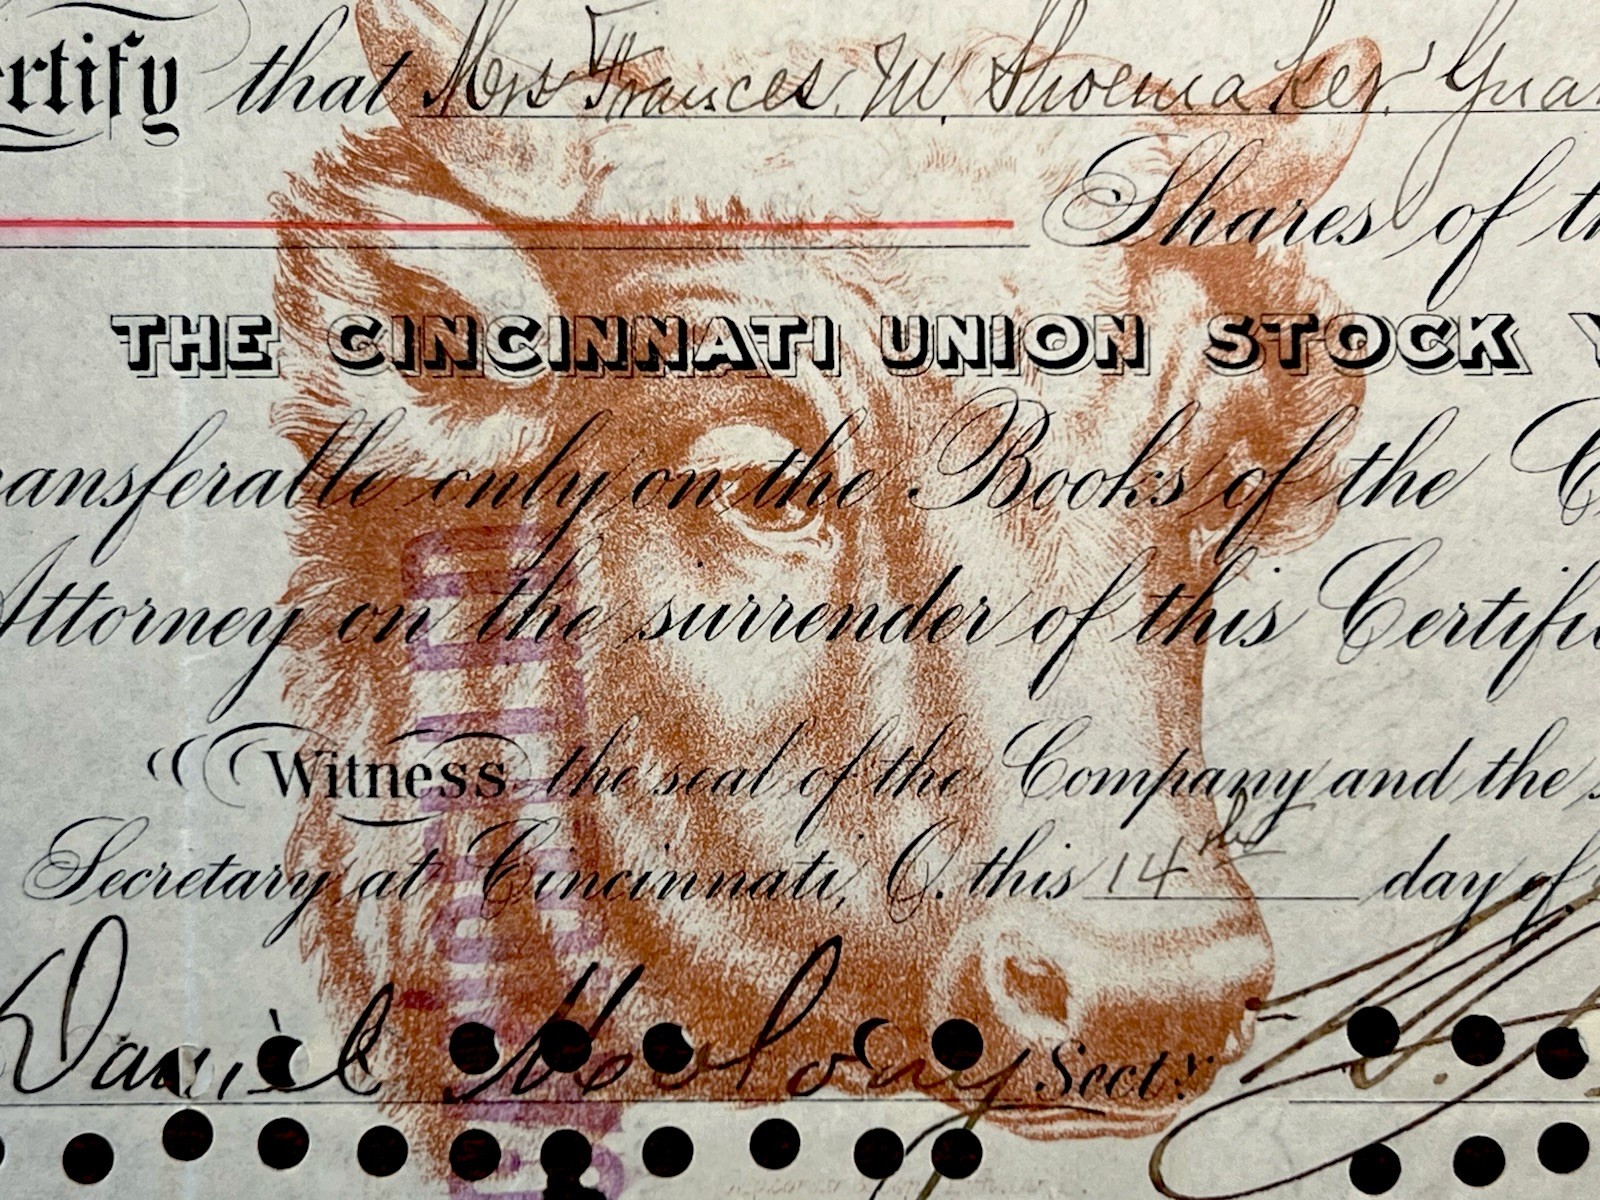 ertify that Mrs Frances. M. Shoemaker, Guar
Shares of th
THE CINCINNATI UNION STOCK Y
ransferable only on the Books of the C
Attorney on the surrender of this Certific
Witness the seal of the Company and the s
Secretary at Cincinnati, O. this 14th day of
Daniel Secty